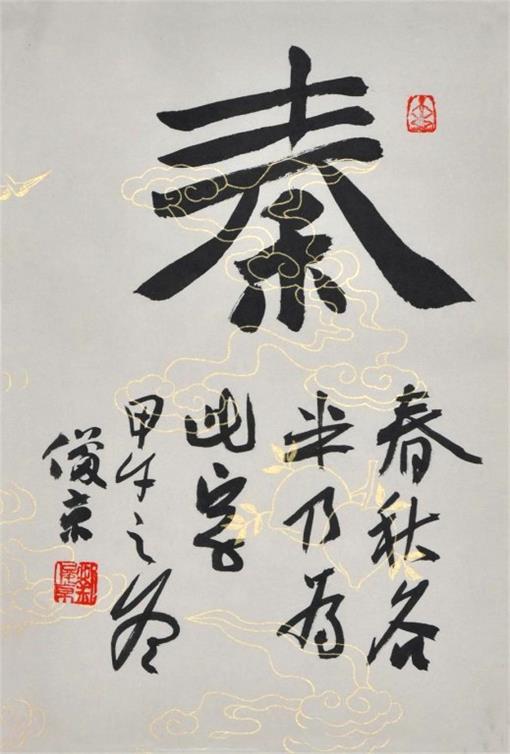 秦
春秋各
半乃為
此字
甲午之冬
俊京